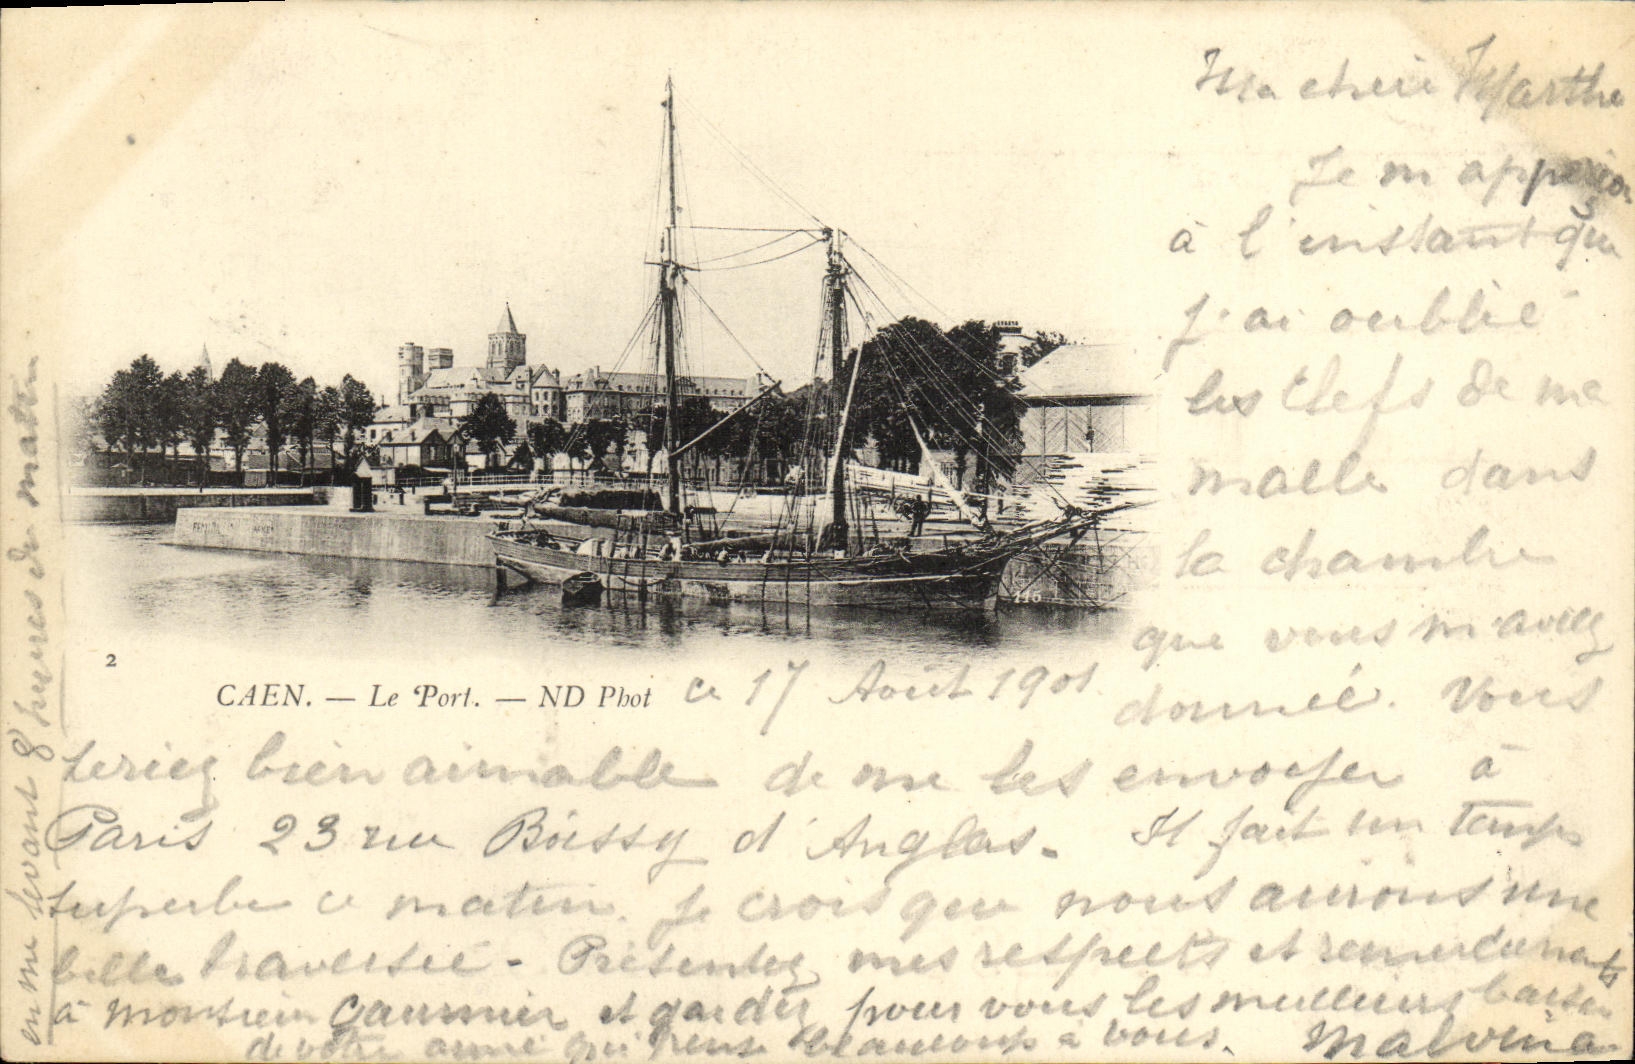 Ma chère Marthe
Je m'apperçois
à l'instant que
j'ai oublié
les clefs de ma
malle dans
la chambre
que vous m'avez
donnée. Vous
2
CAEN. — Le Port. — ND Phot
ce 17 Août 1901.
116
seriez bien aimable de me les envoyer à
Paris 23 rue Boissy d'Anglas. Il fait un temps
superbe ce matin. Je crois que nous aurons une
belle traversée - Présentez mes respects et remerciements
à Monsieur Caumier et gardez pour vous les meilleurs baisers
de votre amie qui pense beaucoup à vous. Malvina
en me levant 8 heures du matin.